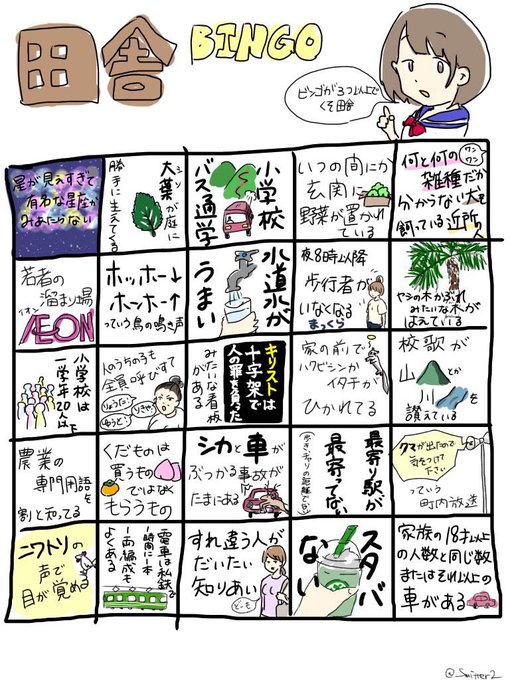 田舎
BINGO
ビンゴが3つ以上で
くそ田舎
星が見えすぎて
有名な星座が
みあたらない
大葉が庭に
シソ
勝手に生えてくる
小学校
バス通学
いつの間にか
玄関に
野菜が置かれ
ている
何と何の
ワンワン
雑種だか
分からない犬を
飼っている近所人
若者の
溜まり場
イオン
ÆON
ホッホー↓
ホーホー↑
っていう鳥の鳴き声
水道水が
うまい
夜8時以降
歩行者が
いなくなる
まっくら
ヤシの木かぶれ
みたいな木が
はえている
小学校は
一学年20人以下
人のうちの子も
全員呼びすて
しょうた!
りきや!
ゆうと!
キリストは
十字架で
人の罪を負った
みたいな看板
がある
家の前で
ハクビシンか
イタチが
ひかれてる
校歌が
山とか
川を
讃えている
農業の
専門用語を
割と知ってる
くだものは
買うもの
ではなく
もらうもの
シカと車が
ぶつかる事故が
たまにある
最寄り駅が
最寄ってない
クマが出たので
気をつけて
下さい
っていう
町内放送
ニワトリの
声で
目が覚める
電車は私鉄で
1時間に1本
1両編成も
よくある
すれ違う人が
だいたい
知りあい
どーも
スタバ
ない
家族の18才以上
の人数と同じ数
またはそれ以上の
車がある